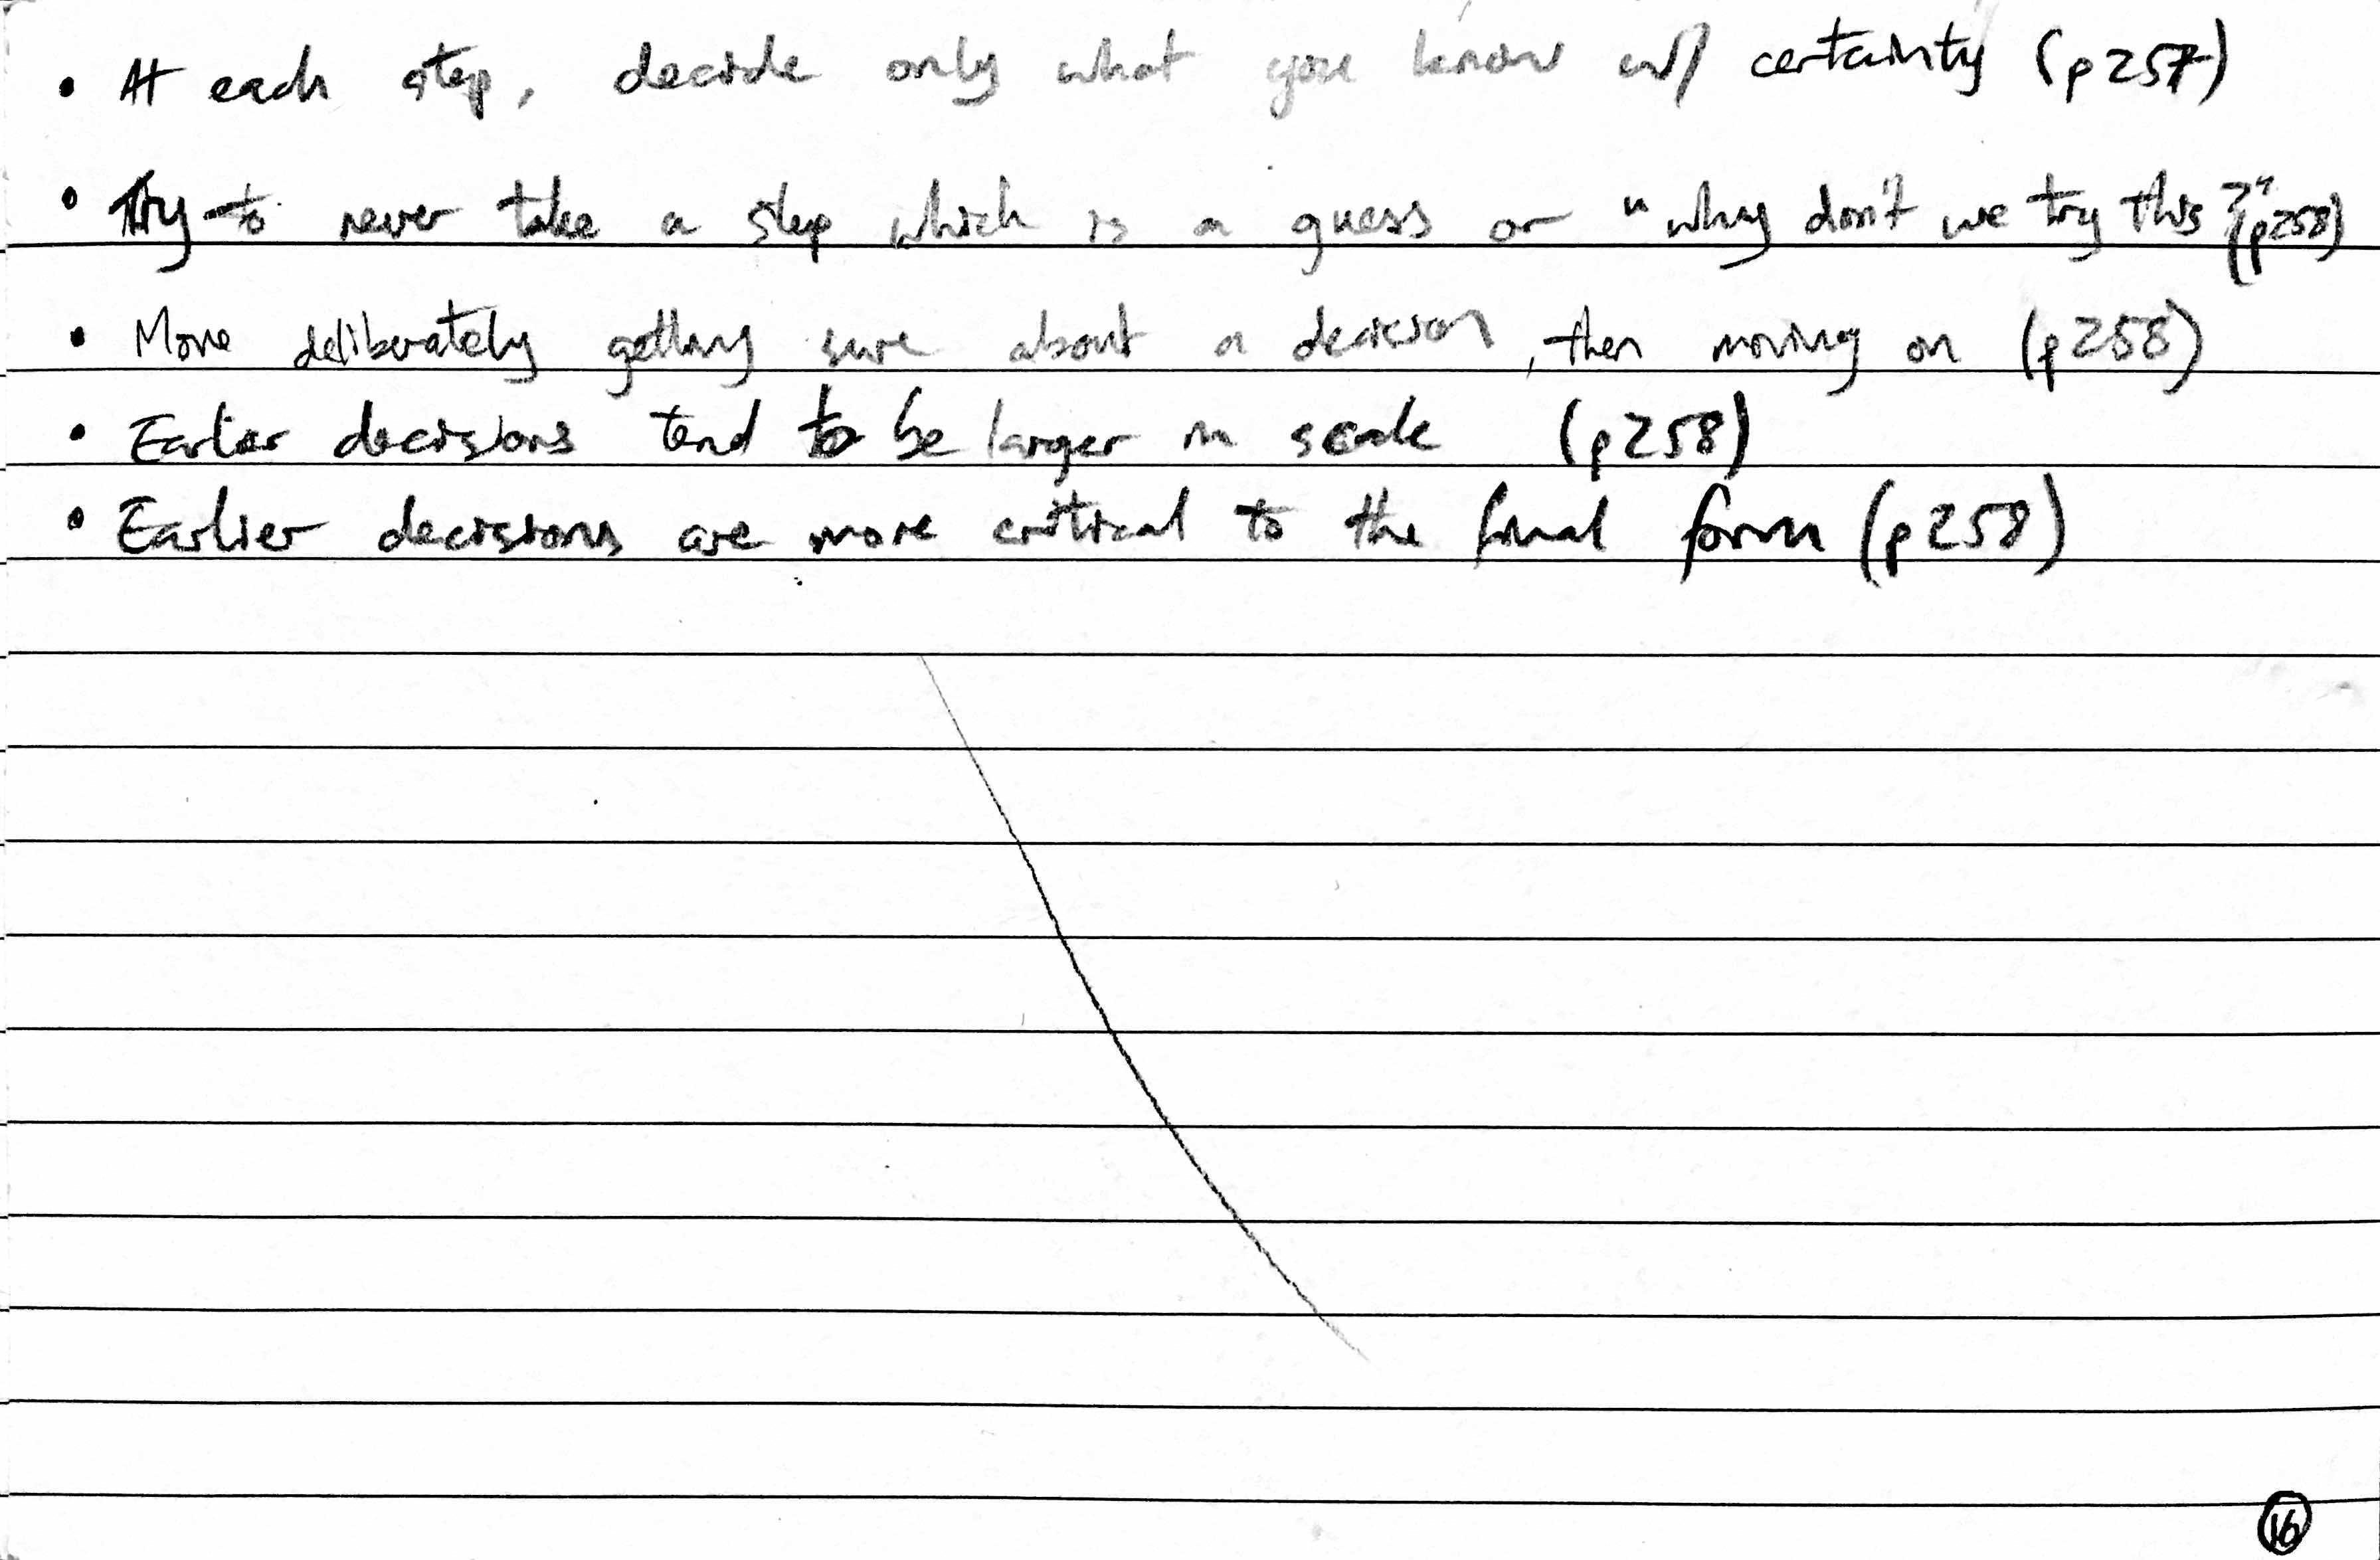 • At each step, decide only what you know w/ certainty (p257)
• Try to never take a step which is a guess or "why don't we try this?" (p258)
• Move deliberately getting sure about a decision, then moving on (p258)
• Earlier decisions tend to be larger in scale (p258)
• Earlier decisions are more critical to the final form (p258)
16